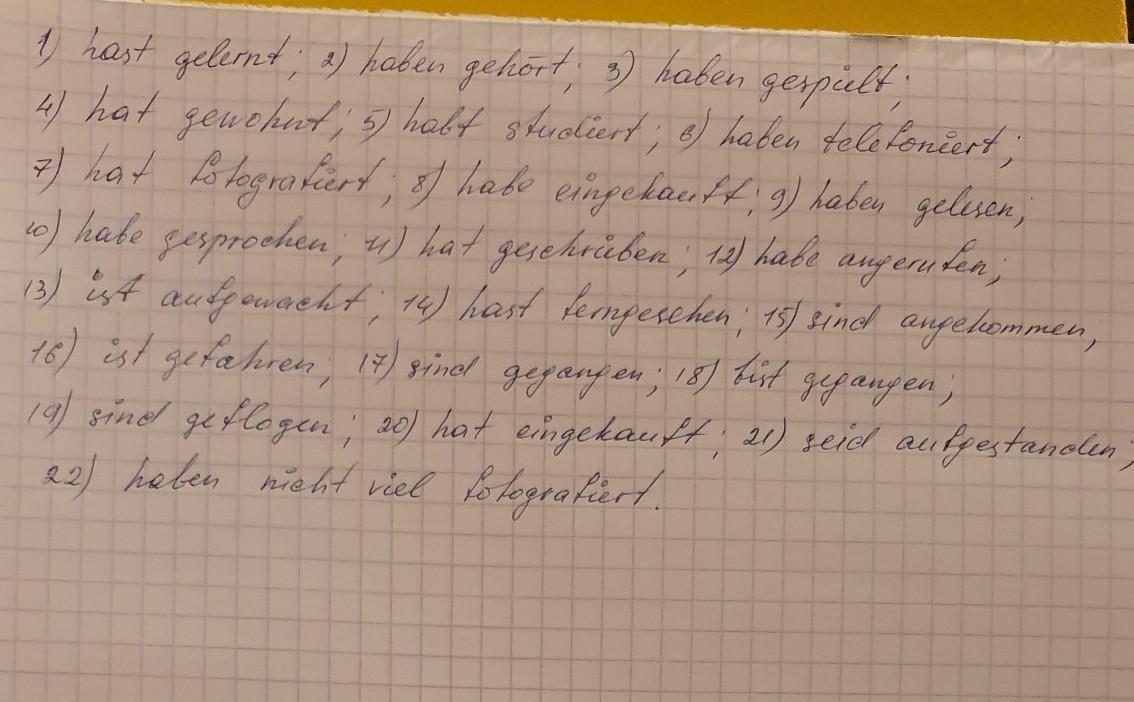 1) hast gelernt; 2) haben gehört; 3) haben gespült;
4) hat gewohnt; 5) habt studiert; 6) haben telefoniert;
7) hat fotografiert; 8) habe eingekauft; 9) haben gelesen;
10) habe gesprochen; 11) hat geschrieben; 12) habe angerufen;
13) ist aufgewacht; 14) hast ferngesehen; 15) sind angekommen,
16) ist gefahren; 17) sind gegangen; 18) bist gegangen;
19) sind geflogen; 20) hat eingekauft; 21) seid aufgestanden;
22) haben nicht viel fotografiert.